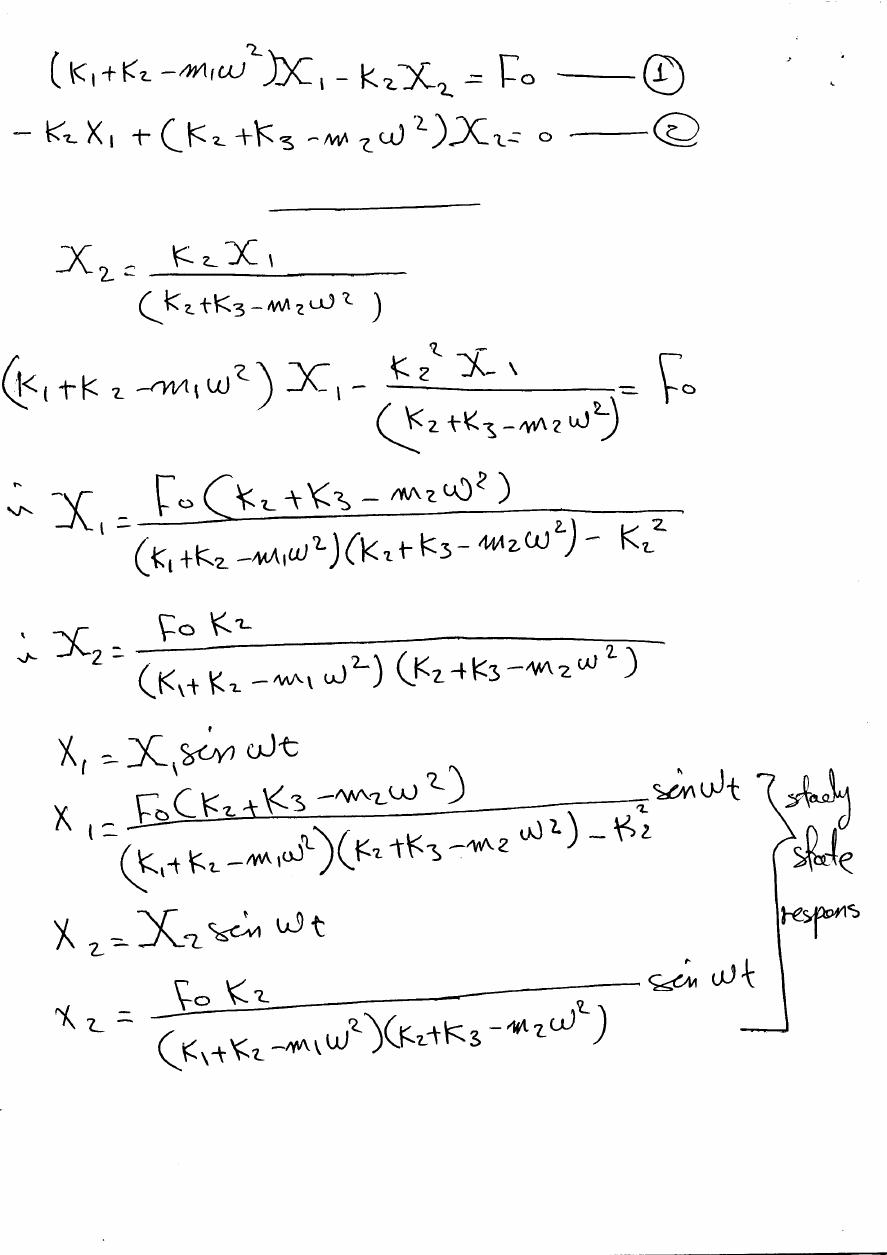 (K₁+K₂-m₁ω²)X₁-K₂X₂ = F₀ —— ①
-K₂X₁+(K₂+K₃-m₂ω²)X₂=0 —— ②
X₂ = K₂X₁ / (K₂+K₃-m₂ω²)
(K₁+K₂-m₁ω²)X₁ - K₂²X₁ / (K₂+K₃-m₂ω²) = F₀
∴ X₁ = F₀(K₂+K₃-m₂ω²) / (K₁+K₂-m₁ω²)(K₂+K₃-m₂ω²)-K₂²
∴ X₂ = F₀K₂ / (K₁+K₂-m₁ω²)(K₂+K₃-m₂ω²)
x₁ = X₁ sin ωt
x₁ = F₀(K₂+K₃-m₂ω²) / (K₁+K₂-m₁ω²)(K₂+K₃-m₂ω²)-K₂² sin ωt
staely
state
respons
x₂ = X₂ sin ωt
x₂ = F₀K₂ / (K₁+K₂-m₁ω²)(K₂+K₃-m₂ω²) sin ωt